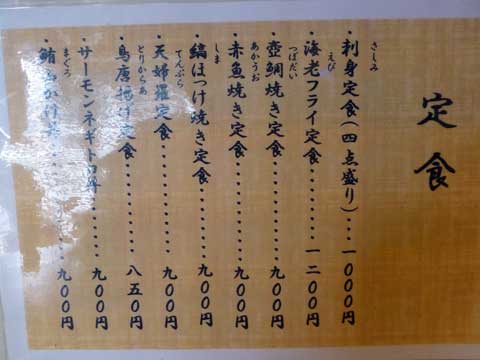 定食
・刺身定食(四点盛り)…一〇〇〇円
さしみ
・海老フライ定食………一二〇〇円
えび
・壺鯛焼き定食………九〇〇円
つぼだい
・赤魚焼き定食………九〇〇円
あかうお
・縞ほっけ焼き定食……九〇〇円
しま
・天婦羅定食………九〇〇円
てんぷら
・鳥唐揚げ定食………八五〇円
とりからあ
・サーモンネギトロ丼……九〇〇円
・鮪 九〇〇円
まぐろ